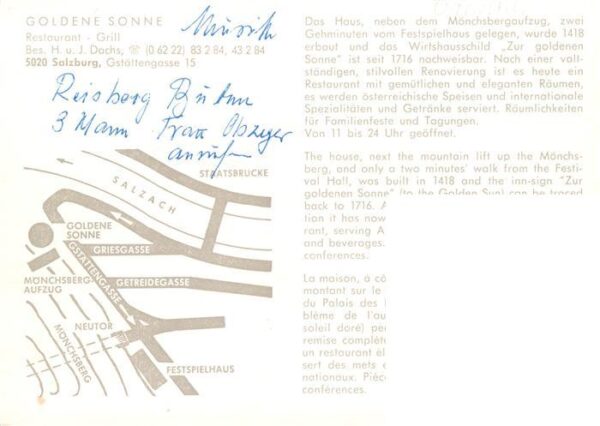 GOLDENE SONNE
Restaurant - Grill
Bes. H. u. J. Dachs, ☏ (0 62 22) 83 2 84, 43 2 84
5020 Salzburg, Gstättengasse 15
Musik
Reisberg
3 Mann Frau
anrufen
STAATSBRÜCKE
SALZACH
GOLDENE
SONNE
GRIESGASSE
GSTÄTTENGASSE
GETREIDEGASSE
MÖNCHSBERG
AUFZUG
NEUTOR
MÖNCHSBERG
FESTSPIELHAUS
Das Haus, neben dem Mönchsbergaufzug, zwei
Gehminuten vom Festspielhaus gelegen, wurde 1418
erbaut und das Wirtshausschild „Zur goldenen
Sonne" ist seit 1716 nachweisbar. Nach einer voll-
ständigen, stilvollen Renovierung ist es heute ein
Restaurant mit gemütlichen und eleganten Räumen,
es werden österreichische Speisen und internationale
Spezialitäten und Getränke serviert. Räumlichkeiten
für Familienfeste und Tagungen.
Von 11 bis 24 Uhr geöffnet.
The house, next the mountain lift up the Mönchs-
berg, and only a two minutes' walk from the Festi-
val Hall, was built in 1418 and the inn-sign "Zur
goldenen Sonne" (to the Golden Sun) can be traced
back to 1716. A
tion it has now
rant, serving A
and beverages.
conferences.
La maison, à cô
montant sur le
du Palais des
blème de l'au
soleil doré) pe
remise complèt
un restaurant él
sert des mets
nationaux. Pièc
conférences.